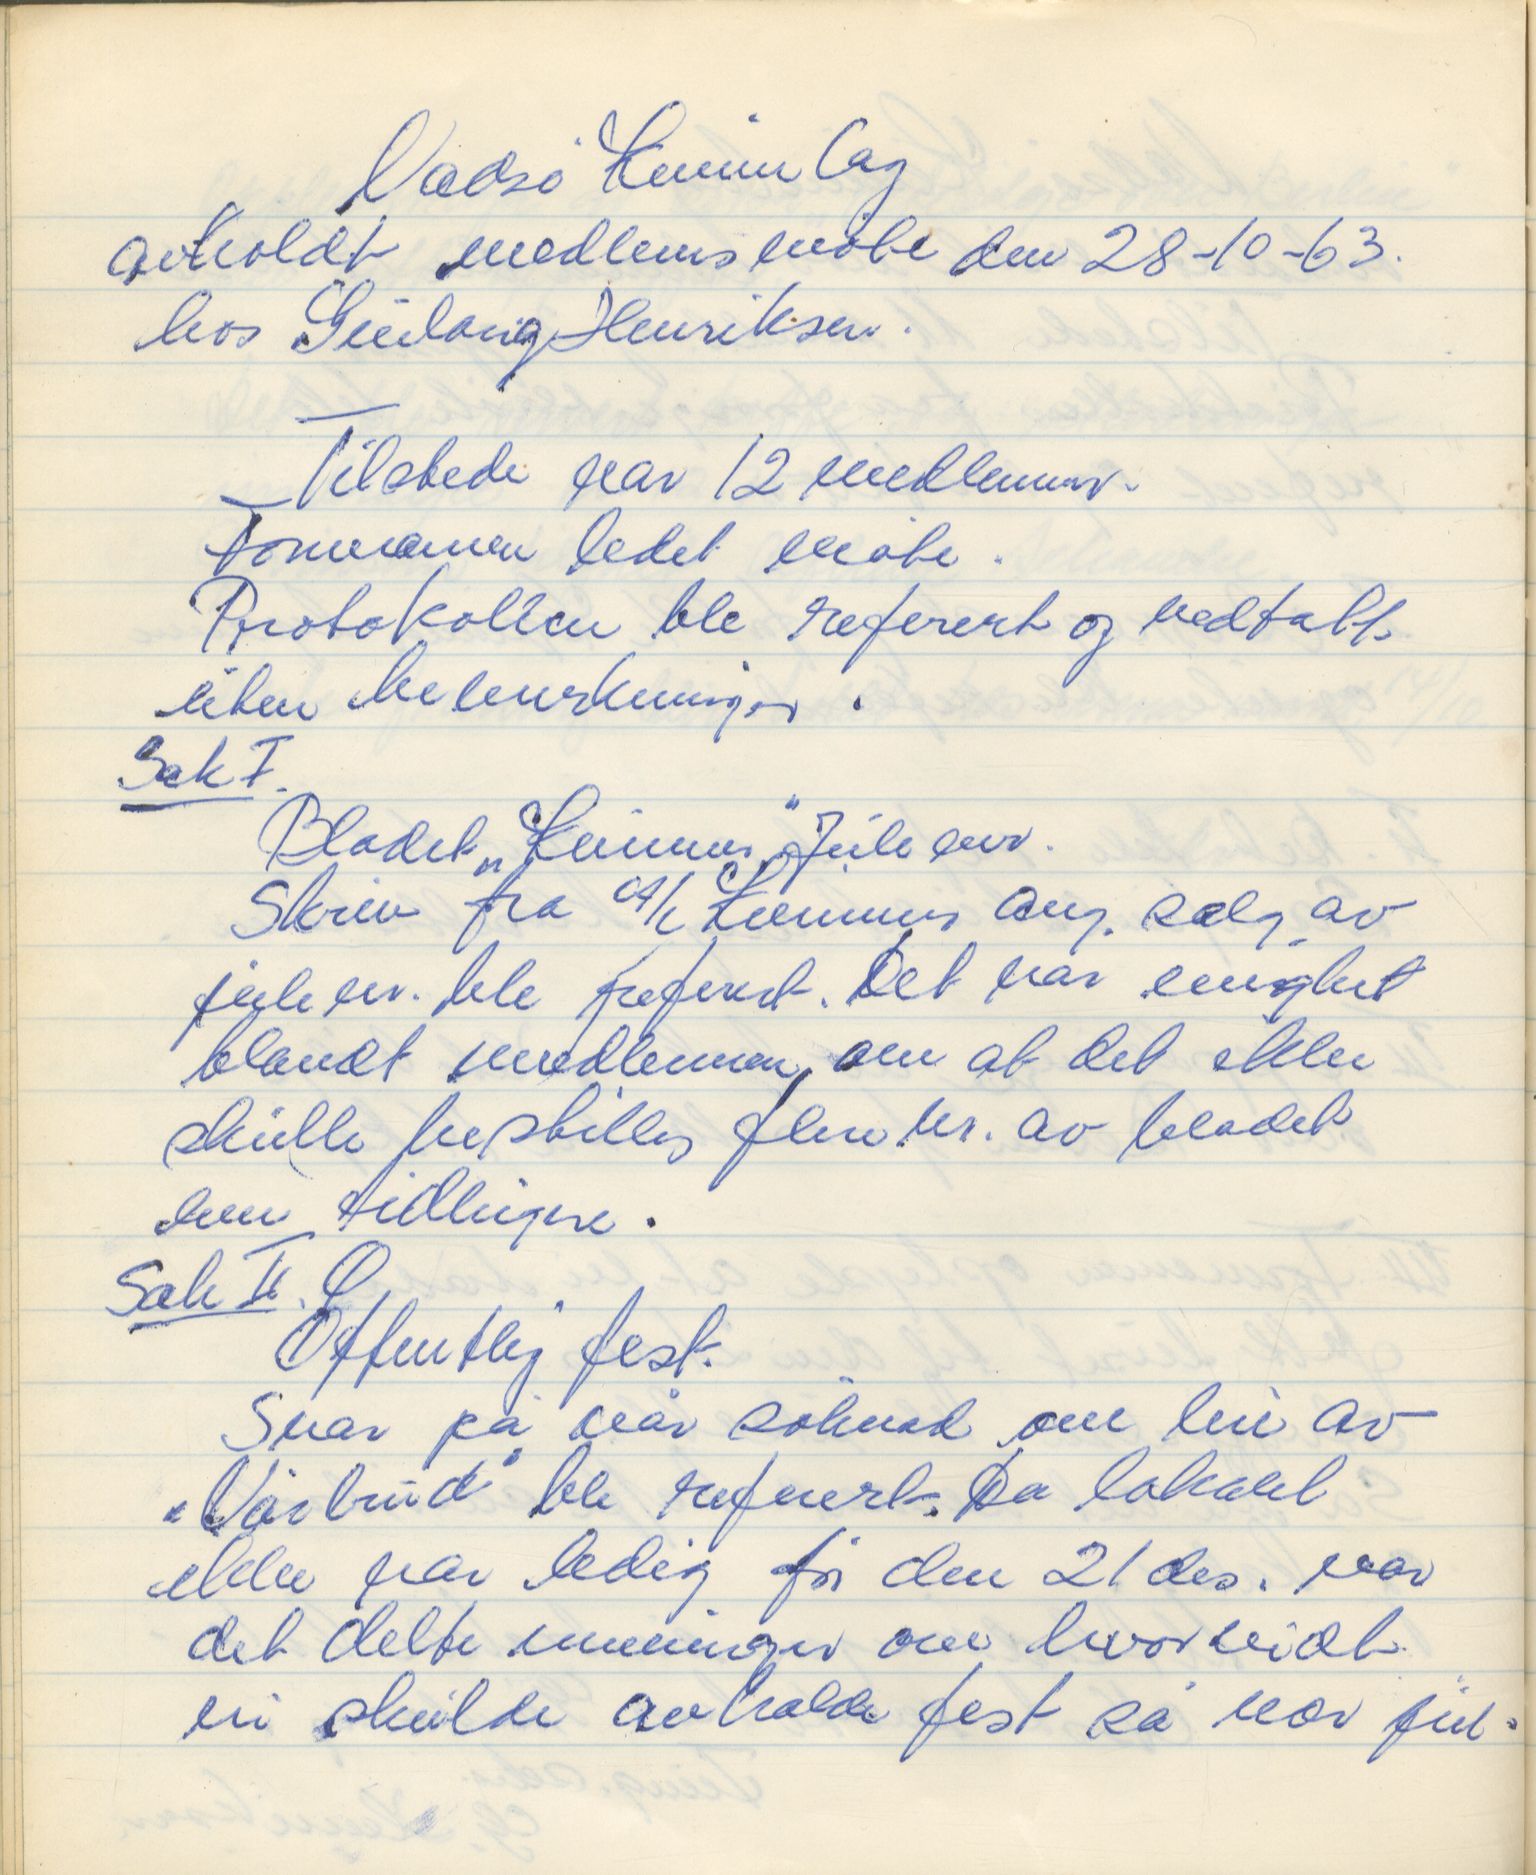 Vadsö Kvinnelag
avholdt medlemsmöte den 28-10-63.
hos Gudlaug Henriksen.
Tilstede var 12 medlemmer.
Formannen ledet möte.
Protokollen ble referert og vedtatt
uten bemerkninger.
Sak I.
Bladet „Kvinnen" Jule nr.
Skriv fra A/L Kvinnen ang. salg av
jule nr. ble referert. Det var enighet
blandt medlemmene om at det ikke
skulle bestilles flere nr. av bladet
enn tidligere.
Sak II.
Offentlig fest.
Svar på vår söknad om leie av
"Vårbrud" ble referert. Da lokalet
ikke var ledig för den 21 des. var
det delte meninger om hvorvidt
vi skulde avholde fest så nær jul.